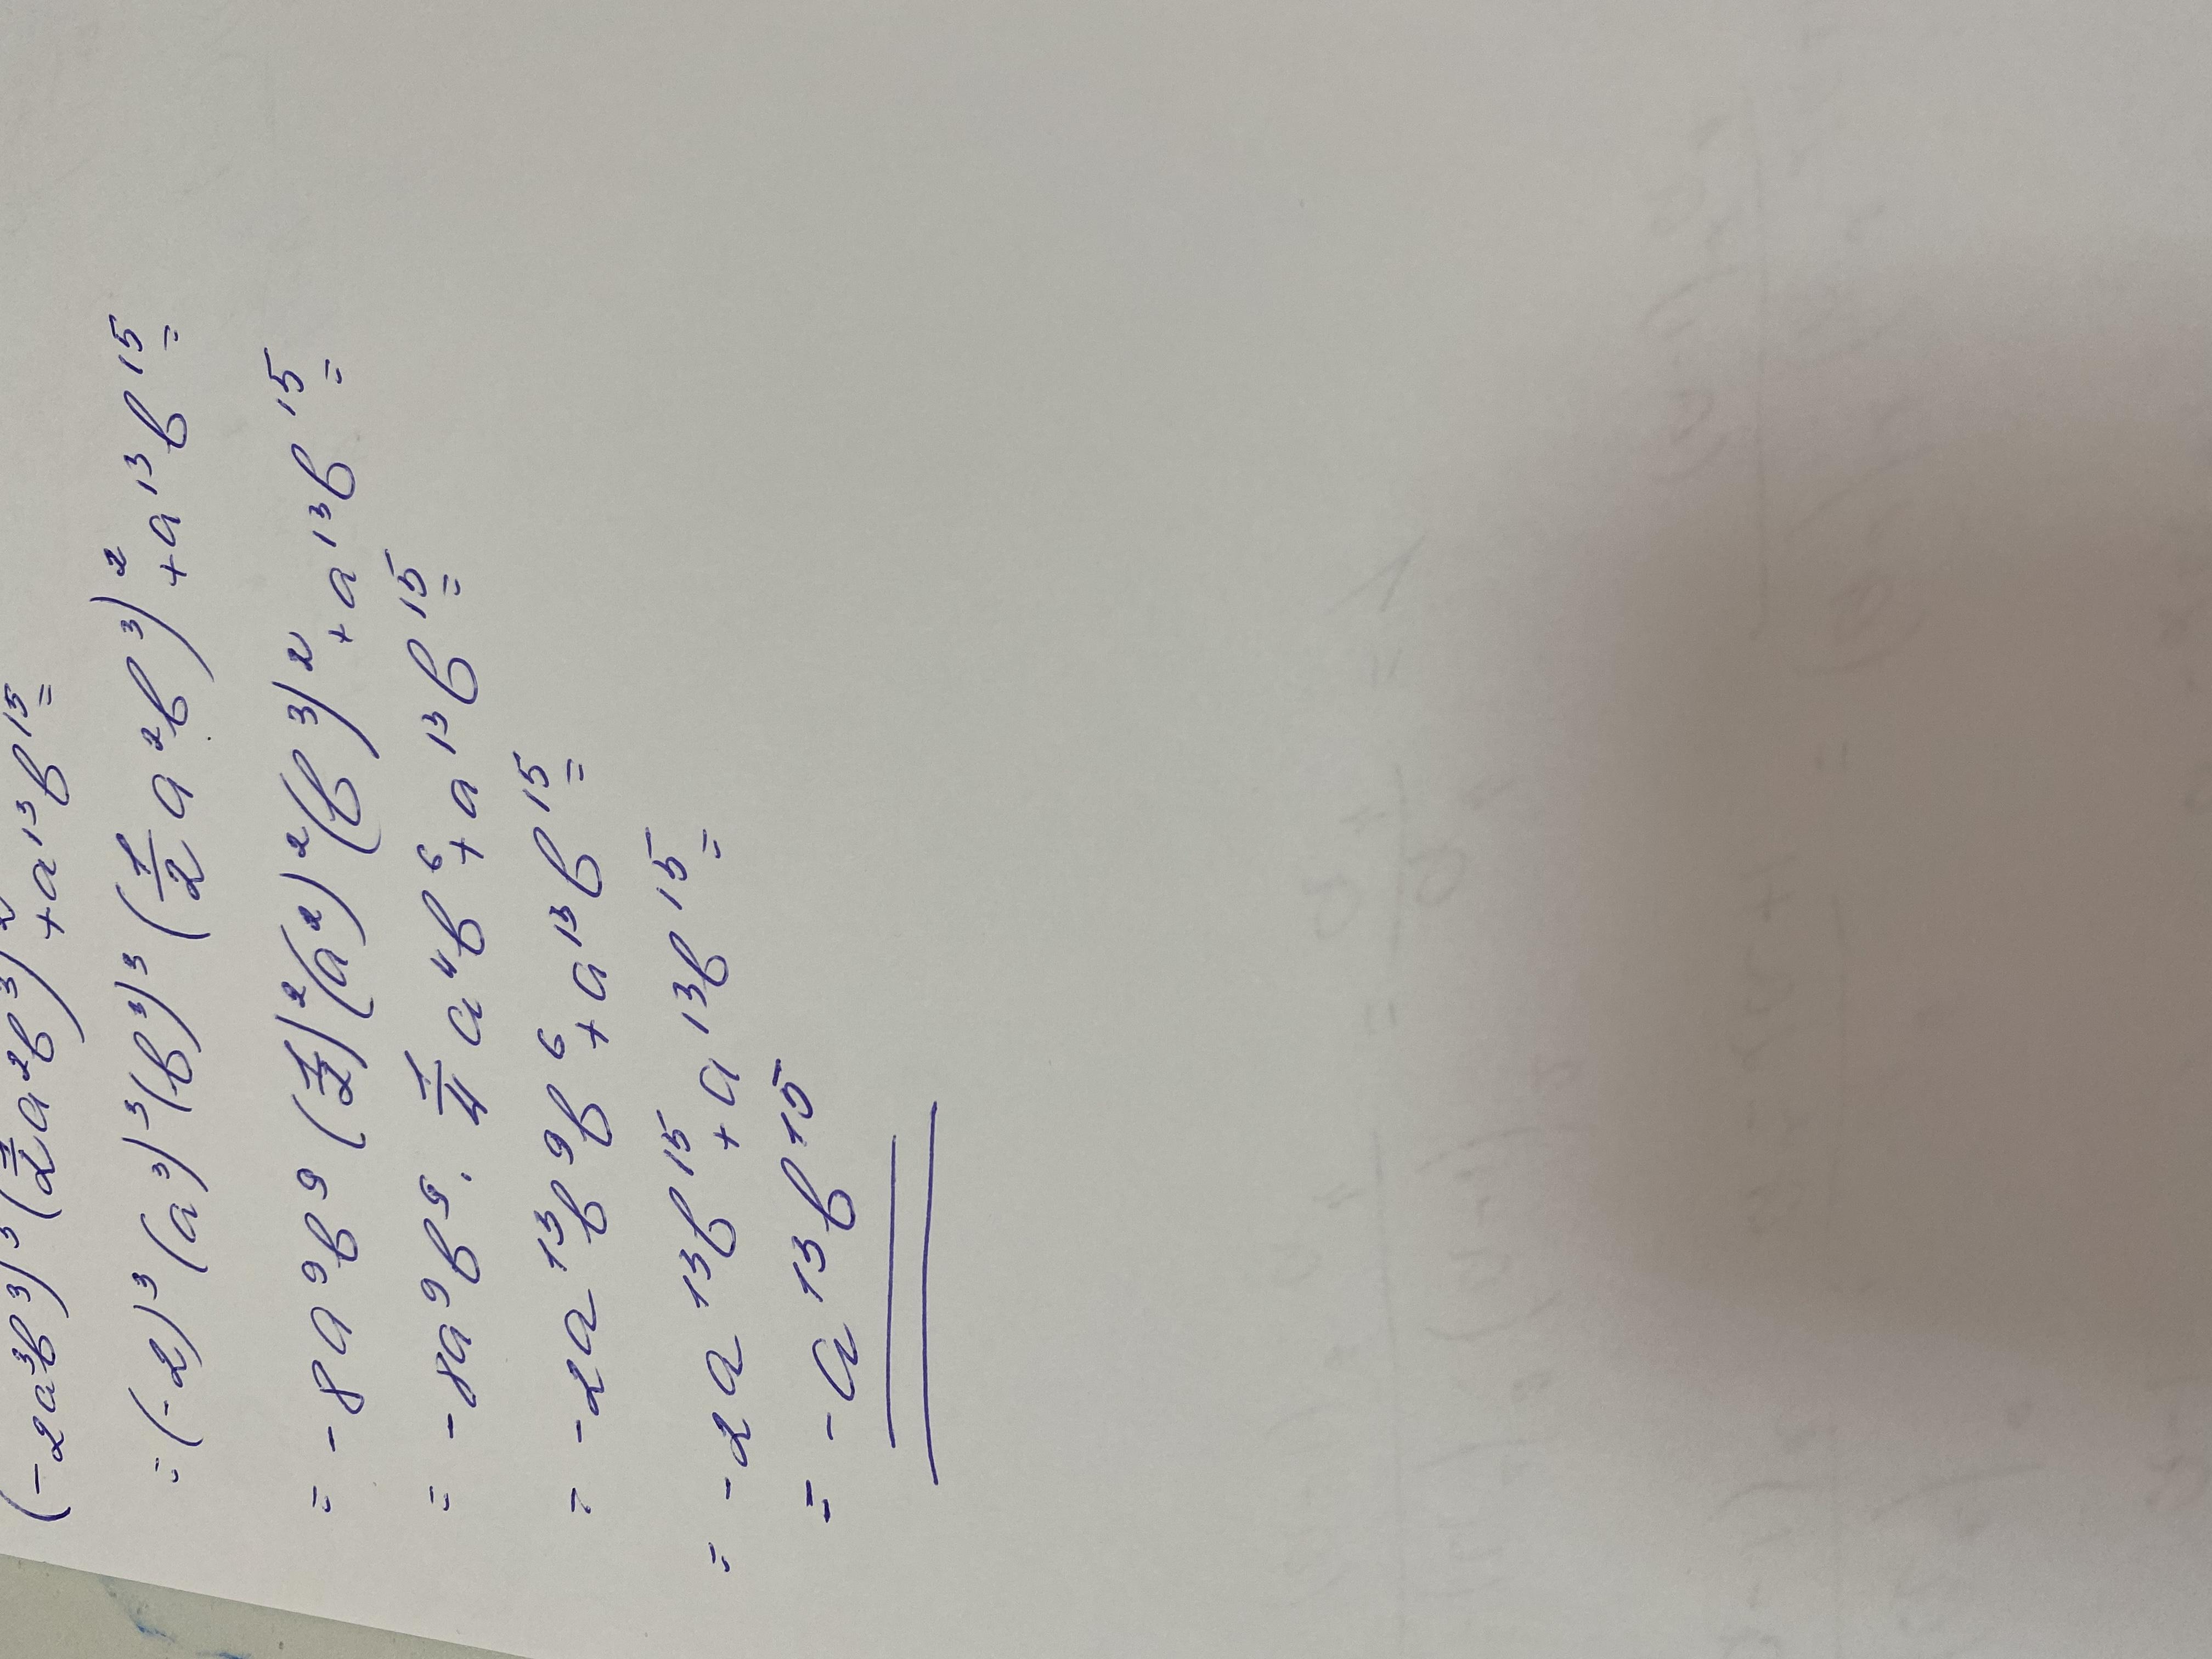 (-2a³b³)³(½a²b³)²+a¹³b¹⁵=
=(-2)³(a³)³(b³)³(½a²b³)²+a¹³b¹⁵=
=-8a⁹b⁹(½)²(a²)²(b³)²+a¹³b¹⁵=
=-8a⁹b⁹·¼a⁴b⁶+a¹³b¹⁵=
=-2a¹³b⁹b⁶+a¹³b¹⁵=
=-2a¹³b¹⁵+a¹³b¹⁵=
=-a¹³b¹⁵